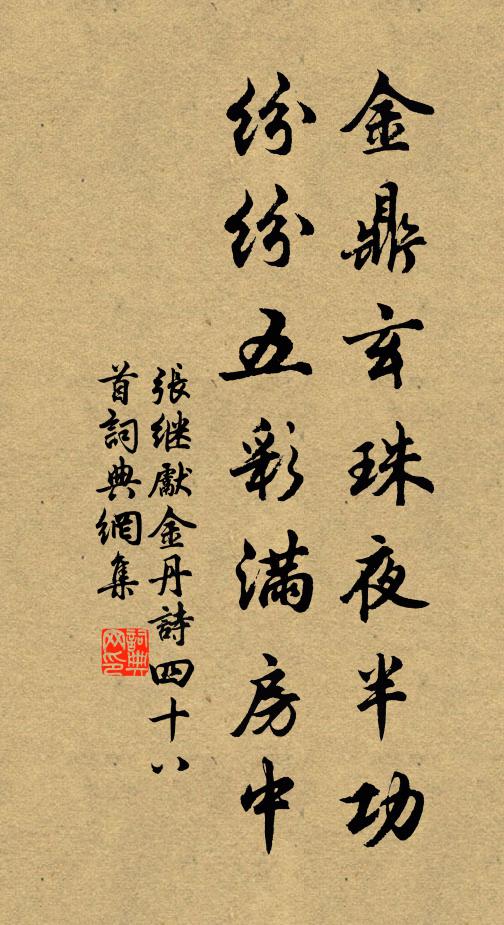 金鼎玄珠夜半功
紛紛五彩滿房中
張継獻金丹詩四十八
首詞典網集
詞典
网印